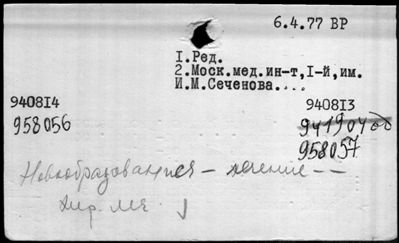 6.4.77 ВР
I.Ред.
2.Моск.мед.ин-т,I-й,им.
И.М.Сеченова....
9408I4
9408I3
958056
958057
Новообразования - лечение --
хир. ме